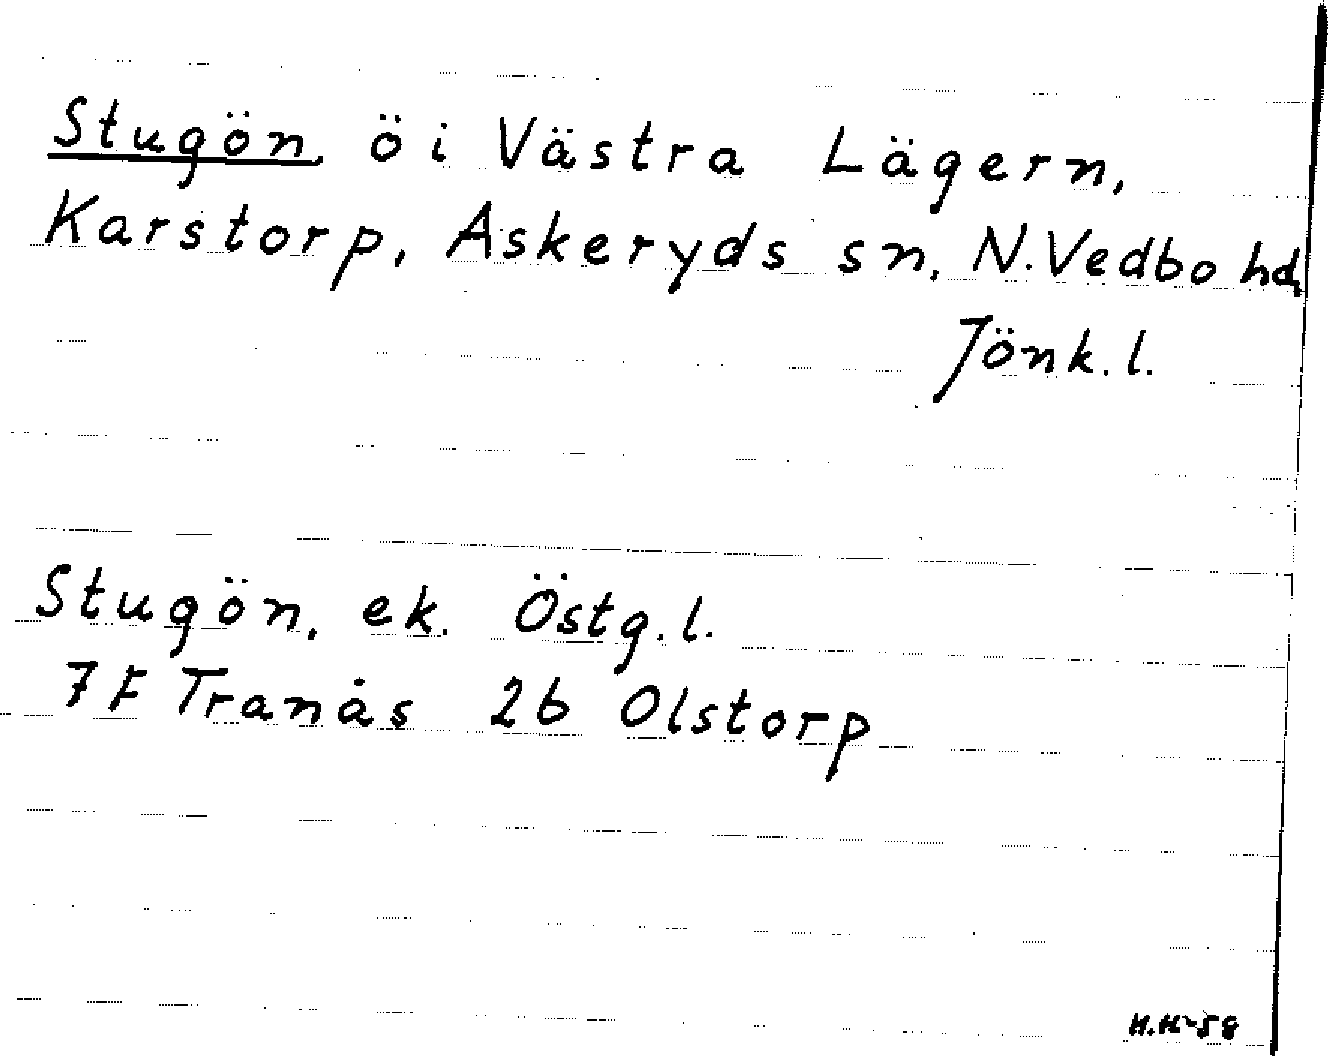 Stugön, ö i Västra Lägern,
Karstorp, Askeryds sn, N. Vedbo hd,
Jönk. l.
Stugön, ek. Östg. l.
7 F Tranås 2b Olstorp
H.H-58